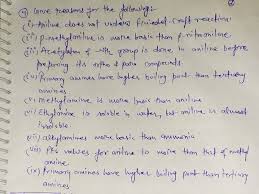 Q Give reasons for the following:-
(i) Aniline does not undergo Friedel-Craft reaction.
(ii) p-methylaniline is more basic than p-nitroaniline.
(iii) Acetylation of -NH₂ group is done in aniline before
preparing its ortho & para compounds.
(iv) Primary amines have higher boiling point than tertiary
amines.
(v) Methylamine is more basic than aniline.
(vi) Ethylamine is soluble in water, but aniline is almost
insoluble.
(vii) alkylamines more basic than ammonia.
(viii) PKb values for aniline is more than that of methyl
amine.
(ix) Primary amines have higher boiling point than tertiary
amines.